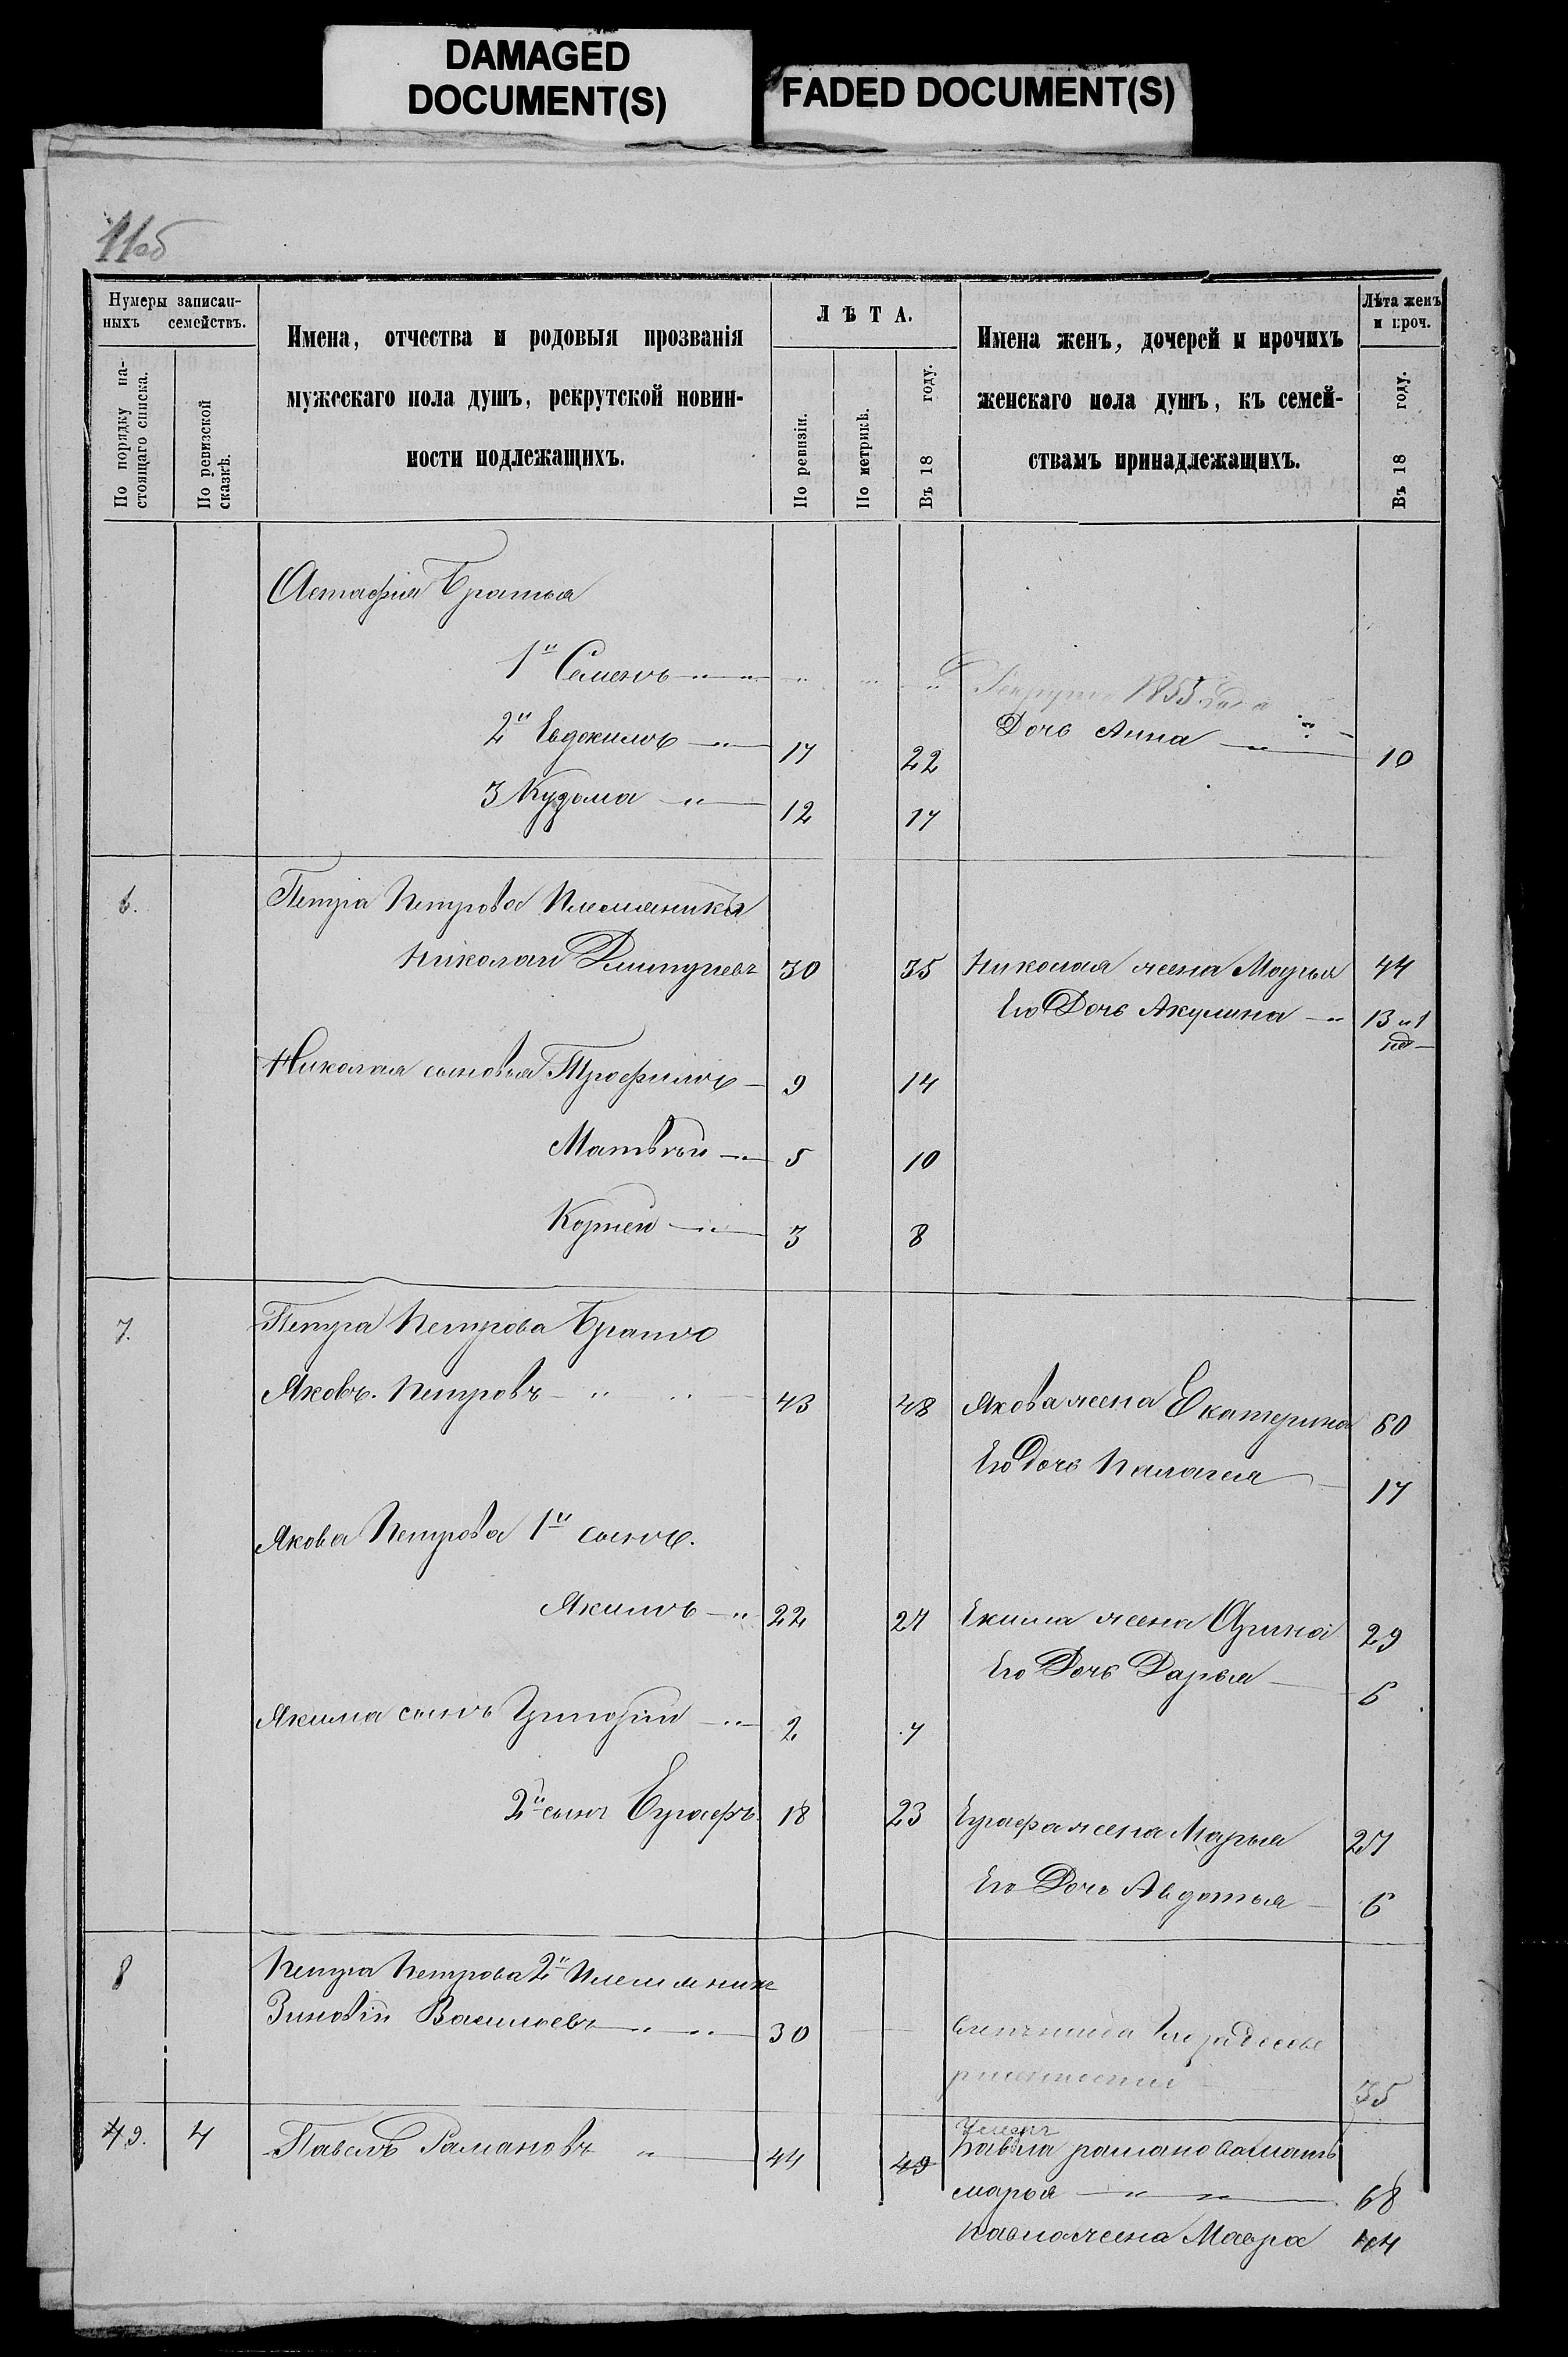 DAMAGED
DOCUMENT(S)
FADED DOCUMENT(S)
11об
Нумеры записан-
ныхъ семействъ.
По порядку на-
стоящаго списка.
По ревизской
сказкѣ.
Имена, отчества и родовыя прозванія
мужескаго пола душъ, рекрутской повин-
ности подлежащихъ.
ЛѢТА.
По ревизіи.
По метрикѣ.
Въ 18 году.
Имена женъ, дочерей и прочихъ
женскаго пола душъ, къ семей-
ствамъ принадлежащихъ.
Лѣта женъ
и проч.
Въ 18 году.
Астафія Братья
1й Семенъ 1855 года
2й Евдокимъ 17 22 Дочь Анна 10
3 Кузьма 12 17
6. Петра Петрова Племяники
Николай 30 35 Николая жена Марья 44
Его Дочь Акулина 13 и 1
Николая сыновья Трофимъ 9 14
Матвѣй 5 10
Корней 3 8
7. Петра Петрова Братъ
Яковъ Петровъ 43 48 Якова жена Екатерина 60
Его дочь Палагея 17
Якова Петрова 1й сынъ.
Якимъ 22 27 Екима жена Арина 29
Его Дочь Дарья 6
Якима сынъ Григорій 2 7
2й сынъ Еграфъ 18 23 Еграфа жена Марья 27
Его Дочь Авдотья 6
8 Петра Петрова 2й Племянник
Зиновій Васильевъ 30
35
9. 4 Павелъ Рамановъ 44 49 Павла раманова мать
марья 68
павла жена Мавра 44